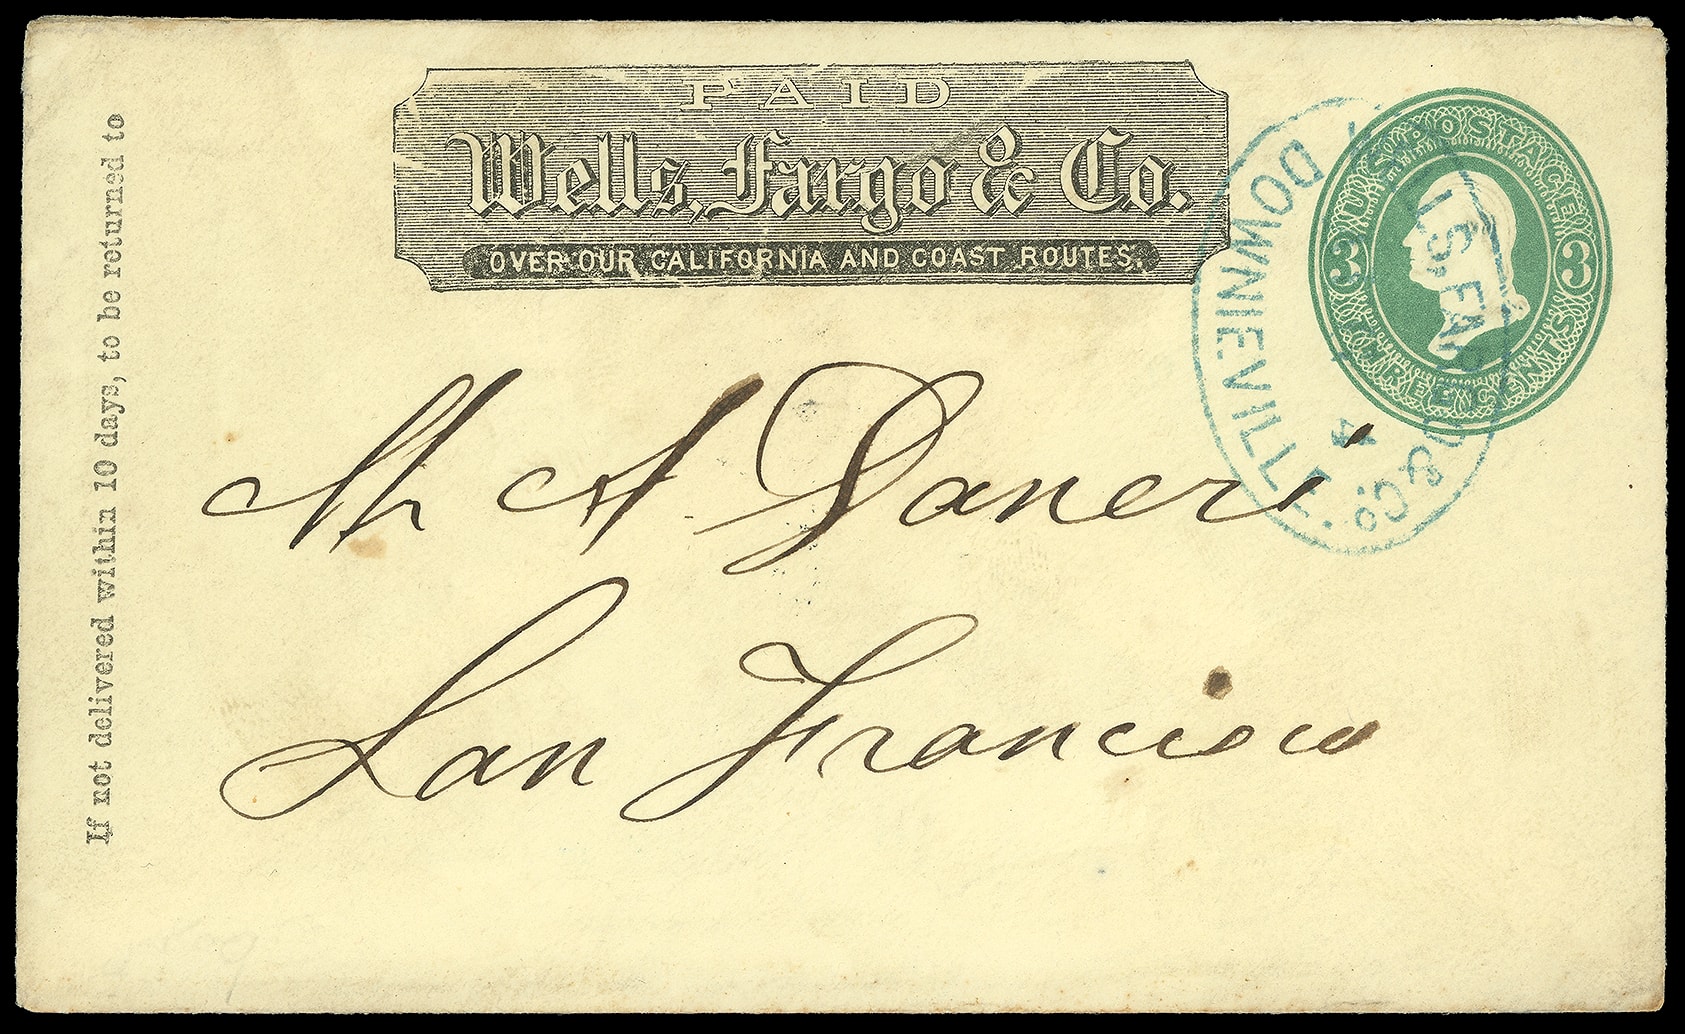 PAID
Wells, Fargo & Co.
OVER OUR CALIFORNIA AND COAST ROUTES.
U.S. POSTAGE
3 3
THREE CENTS
LS, FARGO & Co.
DOWNIEVILLE.
4
If not delivered within 10 days, to be returned to
Mr A Daneri
San Francisco